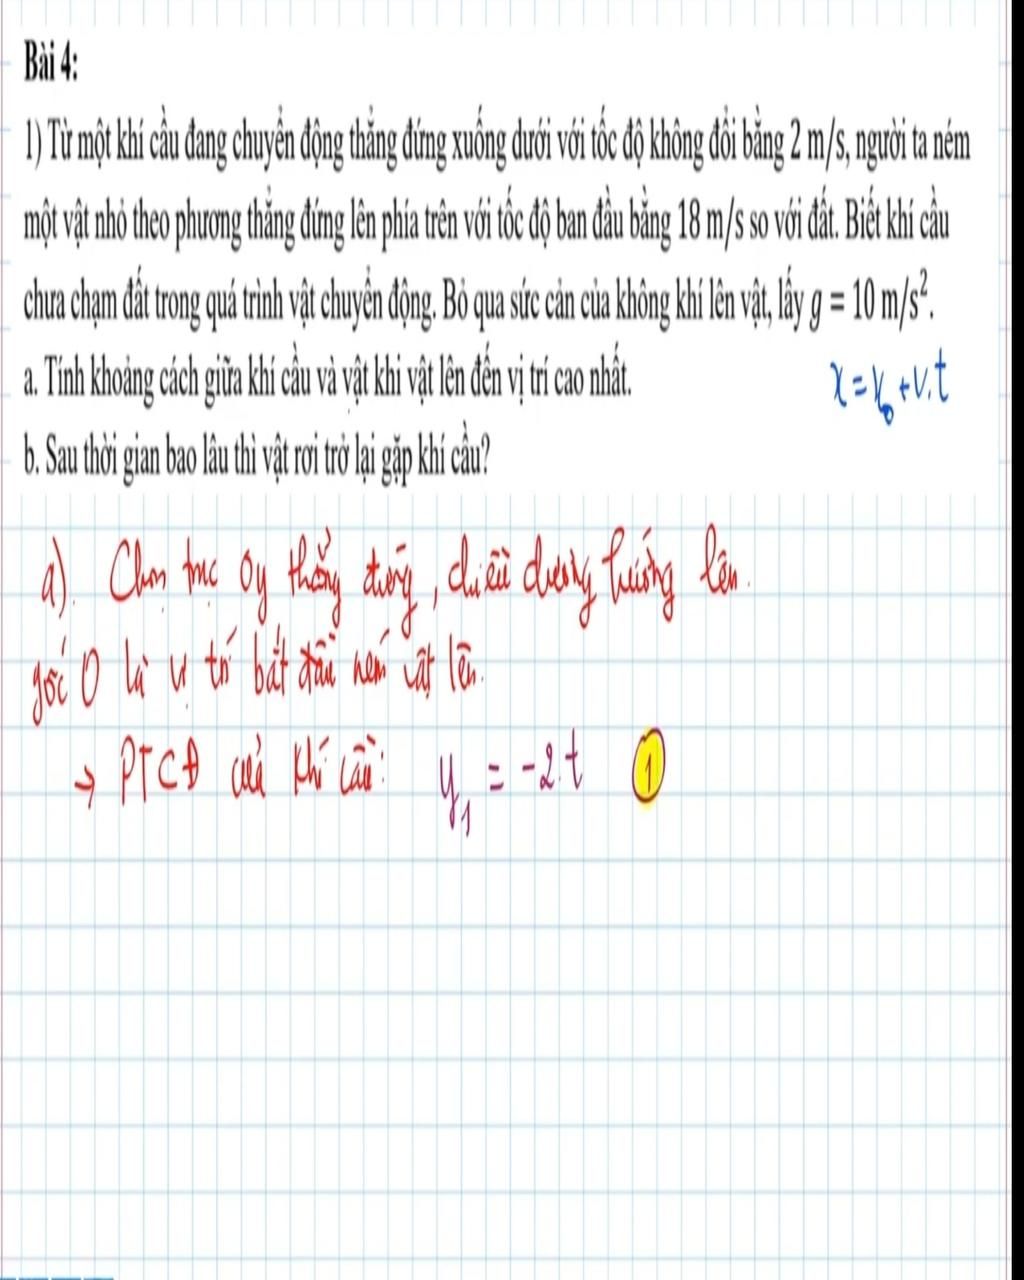 Bài 4:
1) Từ một khí cầu đang chuyển động thẳng đứng xuống dưới với tốc độ không đổi bằng 2 m/s, người ta ném
một vật nhỏ theo phương thẳng đứng lên phía trên với tốc độ ban đầu bằng 18 m/s so với đất. Biết khí cầu
chưa chạm đất trong quá trình vật chuyển động. Bỏ qua sức cản của không khí lên vật, lấy g = 10 m/s².
a. Tính khoảng cách giữa khí cầu và vật khi vật lên đến vị trí cao nhất.
x = x₀ + v.t
b. Sau thời gian bao lâu thì vật rơi trở lại gặp khí cầu?
a). Chọn trục Oy thẳng đứng, chiều dương hướng lên.
gốc O là vị trí bắt đầu ném vật lên.
→ PTCĐ của khí cầu: y₁ = -2.t ①